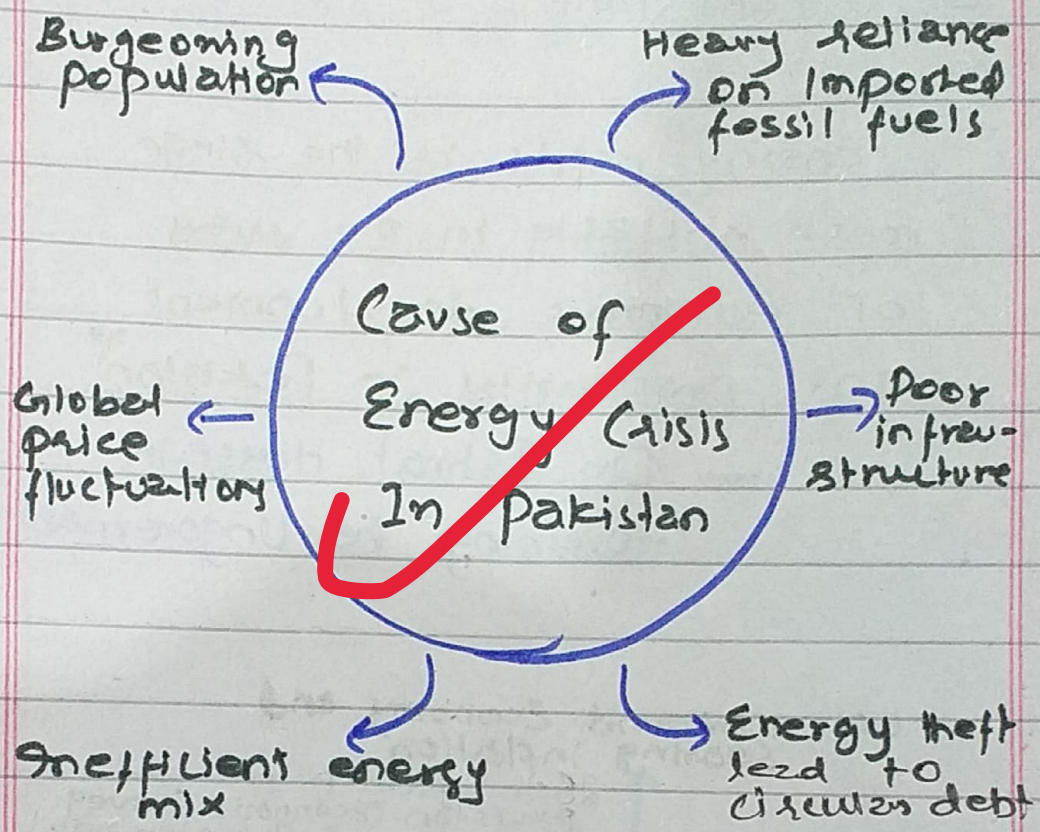 Burgeoning
population
Heavy reliance
on Imported
fossil fuels
Cause of
Energy Crisis
In Pakistan
Global
price
fluctuations
Poor
infrau-
structure
Inefficient energy
mix
Energy theft
lead to
circular debt